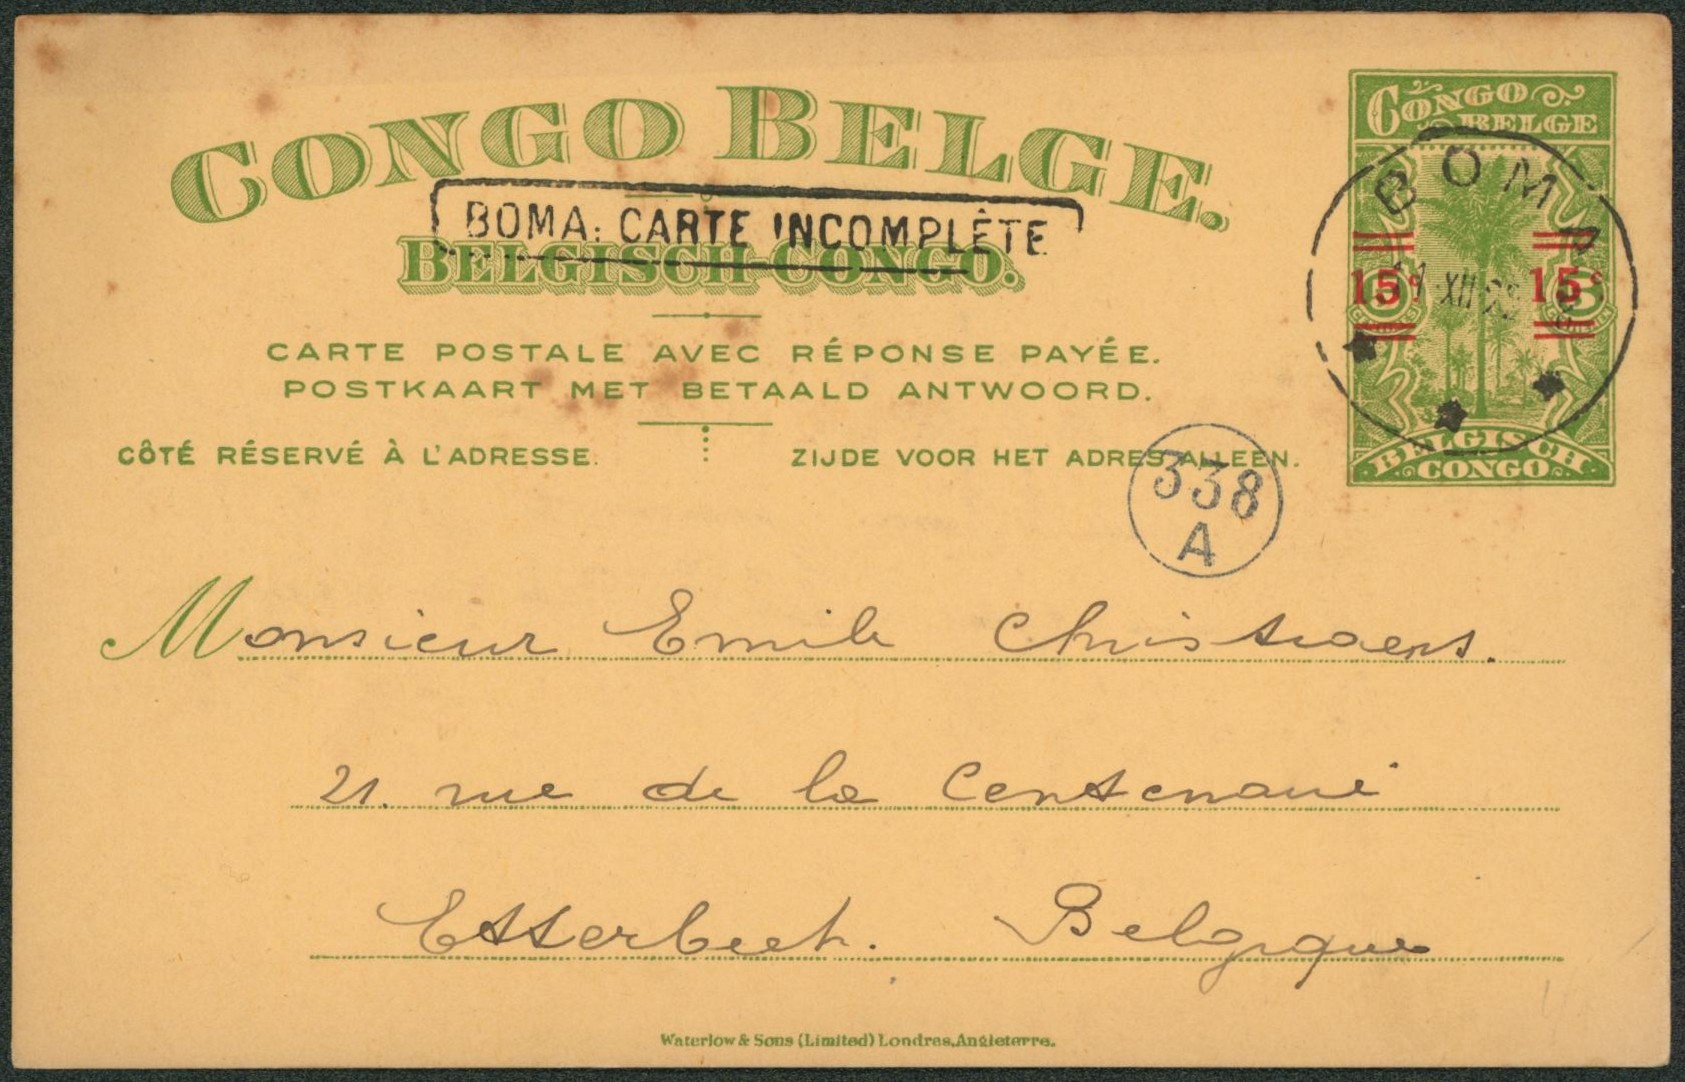 CONGO BELGE.
BOMA: CARTE INCOMPLÈTE
BELGISCH-CONGO.
CARTE POSTALE AVEC RÉPONSE PAYÉE.
POSTKAART MET BETAALD ANTWOORD.
CÔTÉ RÉSERVÉ À L'ADRESSE.
ZIJDE VOOR HET ADRES ALLEEN.
CONGO BELGE
BOMA
15c 15c
XII
BELGISCH CONGO.
338
A
Monsieur Emile Christiaens.
21. rue de la Centenaire
Etterbeek. Belgique
Waterlow & Sons (Limited) Londres, Angleterre.